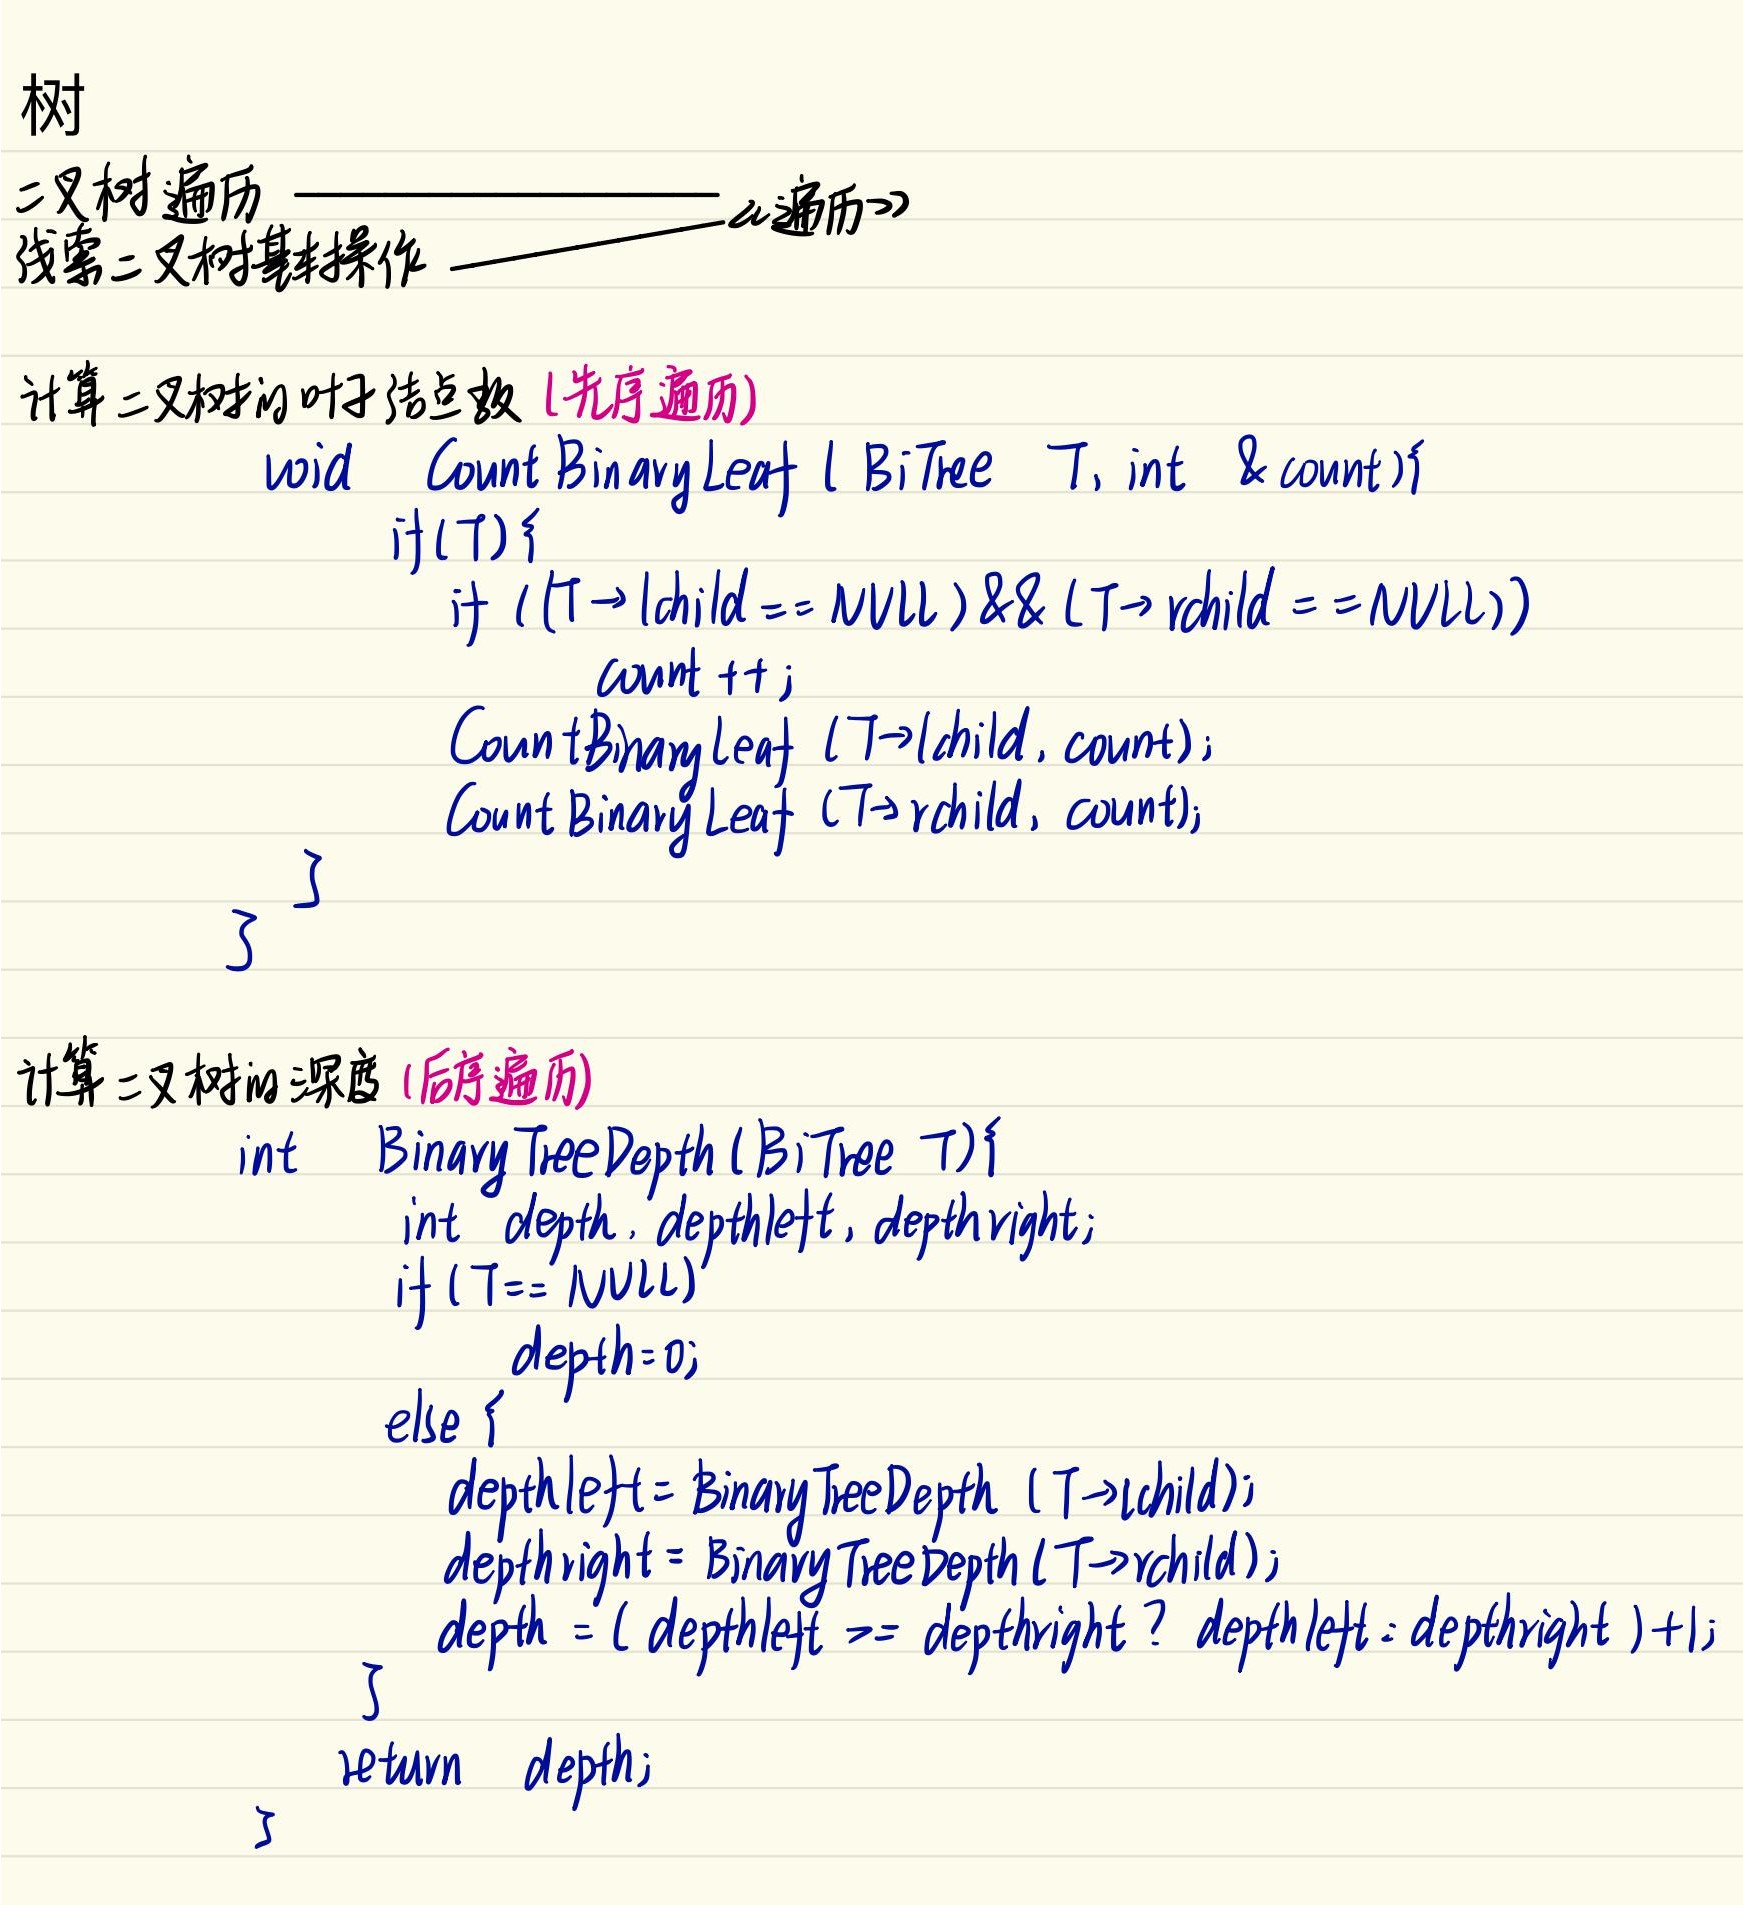 树
二叉树遍历 《遍历》
线索二叉树基本操作
计算二叉树的叶子结点数 (先序遍历)
void CountBinaryLeaf ( BiTree T, int &count){
if(T){
if ((T→lchild == NULL)&&(T→rchild == NULL))
count ++;
CountBinaryLeaf (T→lchild, count);
CountBinaryLeaf (T→rchild, count);
}
}
计算二叉树的深度 (后序遍历)
int BinaryTreeDepth(BiTree T){
int depth, depthleft, depthright;
if(T== NULL)
depth=0;
else {
depthleft = BinaryTreeDepth (T→lchild);
depthright = BinaryTreeDepth(T→rchild);
depth = ( depthleft >= depthright ? depthleft : depthright )+1;
}
return depth;
}